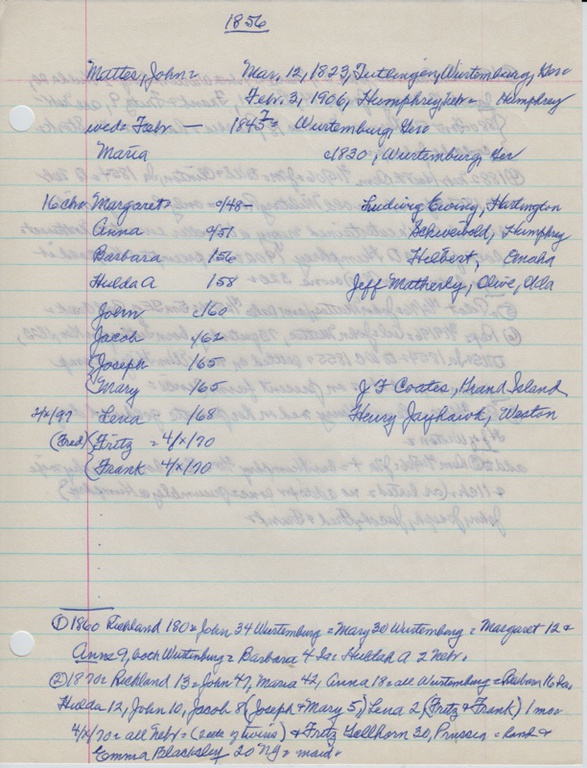 1856
Mattes, John = Mar. 12, 1823, Tutlingen, Wurtemburg, Ger
Feb. 3, 1906, Humphrey Nebr = Humphrey
wed = Febr — 1845 ? Wurtemburg, Ger
Maria c1830, Wurtemburg, Ger
16 chn Margaret = c/48 - Ludwig Ewing, Hartington
Anna c/51 Schweivold, Humphrey
Barbara 1/56 Hilbert, Omaha
Hulda A 1/58 Jeff Matherly, Olive, Okla
John c/60
Jacob c/62
(Joseph 1/65
(Mary 1/65 J F Coates, Grand Island
2/x/97 Lena 1/68 Henry Jayhawk, Weston
(Fred) (Fritz = 4/x/70
(Frank 4/x/70
① 1860 Richland 180 = John 34 Wurtemburg = Mary 30 Wurtemburg = Margaret 12 &
Anna 9, both Wurtemburg = Barbara 4 Ia = Huldah A 2 Nebr.
② 1870 = Richland 13 = John 47, Maria 42, Anna 18 = all Wurtemburg = Barbara 16 Ia =
Hulda 12, John 10, Jacob 8 (Joseph & Mary 5) Lena 2 (Fritz & Frank) 1 mo =
4/x/70 = all Nebr = (2 sets of twins) & Fritz Gellhorn 30, Prussia = hand &
Emma Blacksley 20 NY = maid =